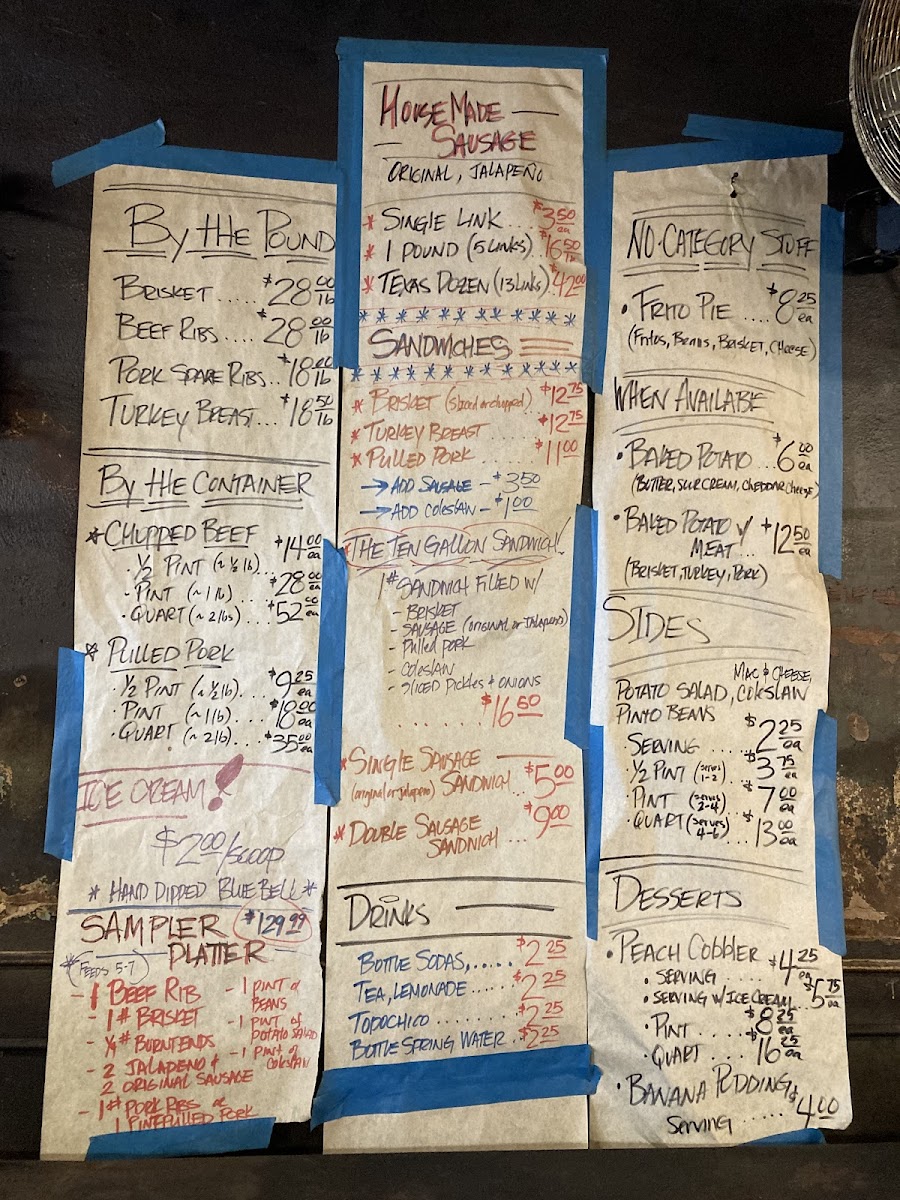 By the Pound
Brisket ..... $28.00 lb
Beef Ribs .... $28.00 lb
Pork Spare Ribs.. $18.00 lb
Turkey Breast... $18.50 lb
By the Container
* Chopped Beef
· 1/2 Pint (~ 1/2 lb)... $14.00 ea
· Pint (~ 1 lb).... $28.00 ea
· Quart (~ 2 lbs) $52.00 ea
* Pulled Pork
· 1/2 Pint (~ 1/2 lb)... $9.25 ea
· Pint (~ 1 lb).... $18.00 ea
· Quart (~ 2 lb)... $35.00 ea
Ice Cream!
$2.00/scoop
* Hand Dipped Blue Bell *
Sampler $129.99
Platter
* (Feeds 5-7)
- 1 Beef Rib
- 1# Brisket
- 1/4# Burnt Ends
- 2 Jalapeno &
2 Original Sausage
- 1# Pork Ribs or
1 Pint Pulled Pork
- 1 pint of
Beans
- 1 pint of
potato salad
- 1 pint of
coleslaw
House Made
Sausage
Original, Jalapeño
* Single Link ... $3.50 ea
* 1 Pound (5 Links).. $16.50
* Texas Dozen (13 Links). $42.00
Sandwiches
* Brisket (sliced or chopped) $12.75
* Turkey Breast .... $12.75
* Pulled Pork ..... $11.00
→ Add Sausage - $3.50
→ Add Coleslaw - $1.00
The Ten Gallon Sandwich!
1# Sandwich Filled w/
- Brisket
- Sausage (original or Jalapeno)
- Pulled pork
- Coleslaw
- Sliced Pickles & Onions
.... $16.50
* Single Sausage
(original or jalapeno) Sandwich $5.00
* Double Sausage
Sandwich ... $9.00
Drinks
Bottle Sodas...... $2.25
Tea, Lemonade .... $2.25
Topochico ..... $2.25
Bottle Spring Water .. $2.25
No-Category Stuff
· Frito Pie .... $8.25 ea
(Fritos, Beans, Brisket, Cheese)
When Available
· Baked Potato ... $6.00 ea
(Butter, Sour Cream, Cheddar Cheese)
· Baked Potato w/
Meat... $12.50 ea
(Brisket, Turkey, Pork)
Sides
Mac & Cheese,
Potato Salad, Coleslaw
Pinto Beans
· Serving .... $2.25 ea
· 1/2 Pint (serves 1-2) $3.75 ea
· Pint (serves 2-4) $7.00 ea
· Quart (serves 4-6) $13.00 ea
Desserts
· Peach Cobbler
· Serving .... $4.25 ea
· Serving w/ Ice Cream... $5.75
· Pint .... $8.25 ea
· Quart .... $16.25 ea
· Banana Pudding
Serving ..... $4.00